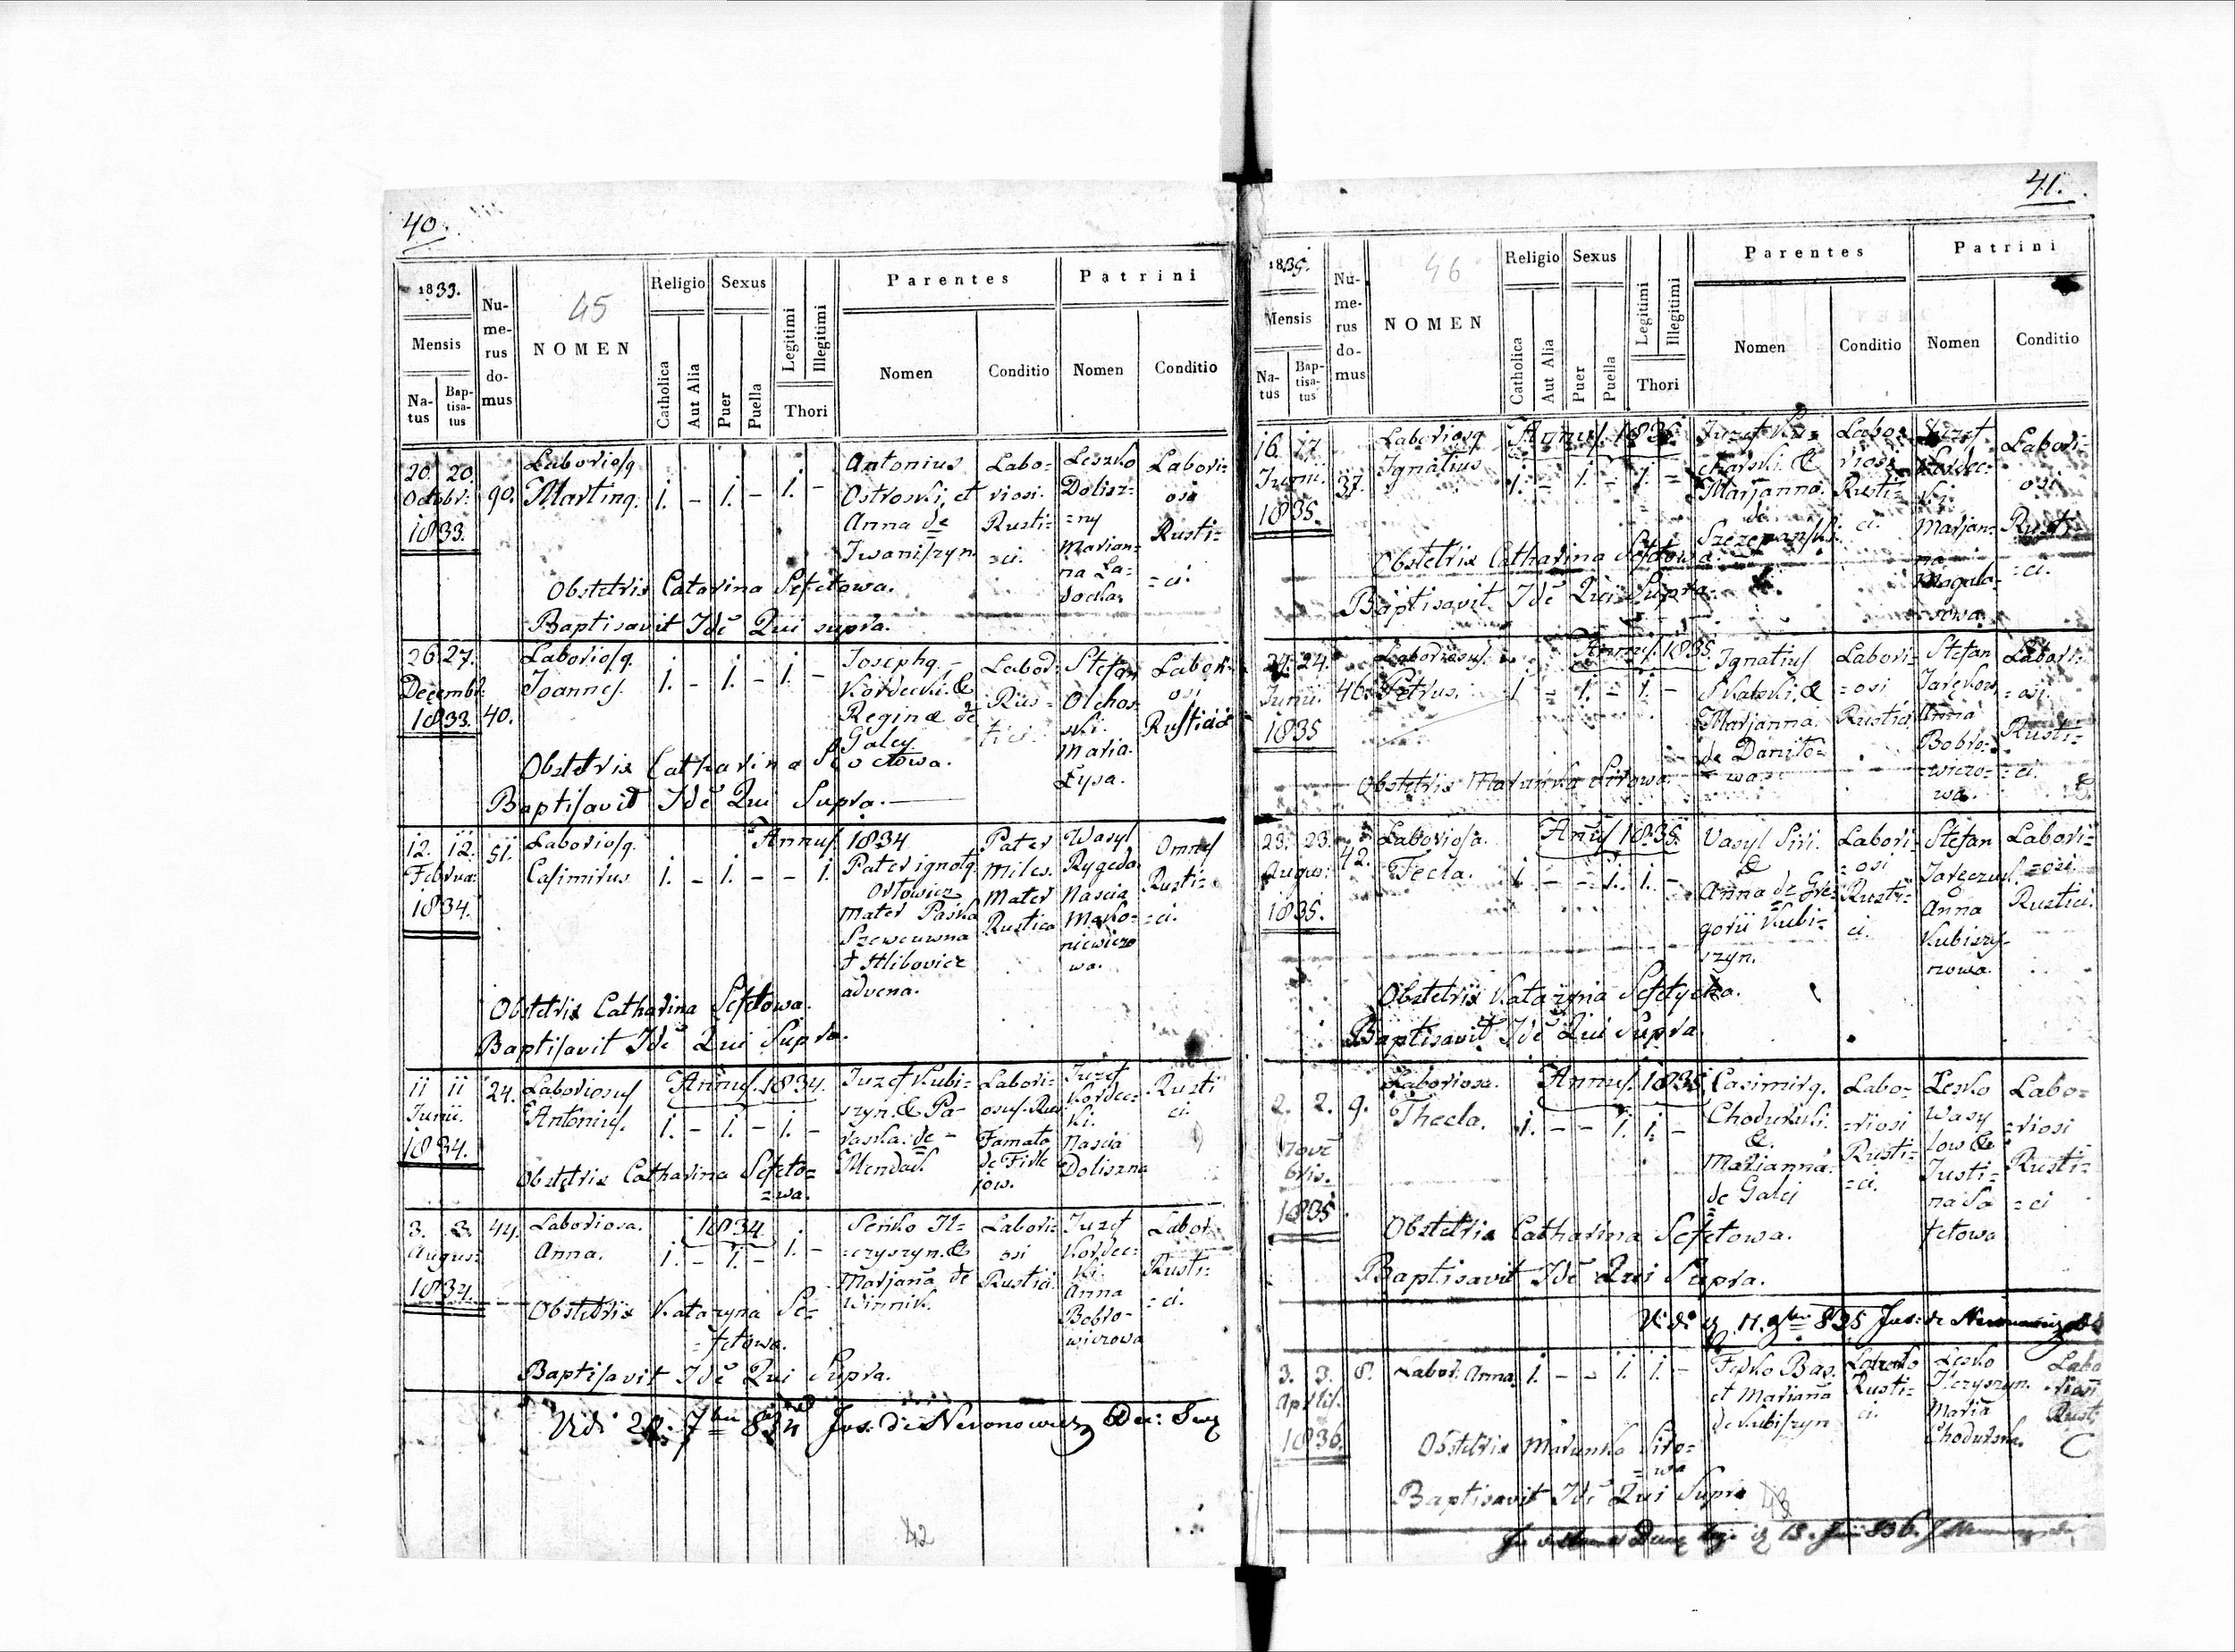 40.
1833.
Mensis
Na-
tus
Bap-
tisa-
tus
Nu-
me-
rus
do-
mus
45
NOMEN
Religio
Catholica
Aut Alia
Sexus
Puer
Puella
Legitimi
Illegitimi
Thori
Parentes
Nomen
Conditio
Patrini
Nomen
Conditio
20. 20.
Octobr:
1833.
90.
Laboriosq
Martinq.
1. - 1. - 1. -
Antonius
Ostroski, et
Anna de
Iwaniszyn
Labo=
riosi.
Rusti=
=ci.
Leszko
Dolisz=
=ny
Marian=
na La=
Labori=
osi
Rusti=
=ci.
Obstetrix Catarina Sefetowa.
Baptisavit Idē Qui supra.
26. 27.
Decembr.
1833.
40.
Laboriosq.
Joannes.
1. - 1. - 1. -
Josephq.
Kordecki. &
Reginæ de
Galey.
Labor.
Rus=
tici.
Stefan
Olchos
ski.
Maria.
Łysa.
Labor.
osi
Rustici
Obstetrix Catharina
Baptisavit Idē Qui Supra.
12. 12.
Februa:
1834.
51.
Laboriosq.
Casimirus
Annus 1834
1. - 1. - - 1.
Pater ignotq.
Ortowicz
Mater Paska
Szewcuwna
Hlibovicz
advena.
Pater
Miles.
Mater
Rustica
Wasyl
Rygeda
Nascia
Mako=
niewiczo
wa.
Omnes
Rusti=
=ci.
Obstetrix Catharina Sefetowa.
Baptisavit Idē Qui Supra.
11 11
Junii.
1834.
24.
Laboriosus
Antonius.
Annus. 1834.
1. - 1. - 1. -
Juzef Kubi=
szyn. & Pa-
raska. de -
Mendach
Labori=
osus. Rus
Famata
de Firle
jow.
Juzef
Kordec=
ki.
Nascia
Doliszna
Rusti
ci.
Obstetrix Catharina Sefeto=
=wa.
3. 3.
Augus:
1834.
44.
Laboriosa.
Anna.
1834
1. - 1. - 1. -
Seńko Il=
=czyszyn. &
Marjaña de
Winnik.
Labori=
osi
Rustici.
Juzef
Kordec=
ki.
Anna
Bobro-
wiczowa
Labor.
Rusti=
=ci.
Obstetrix Katazyna Se=
=fetowa.
Baptisavit Idē Qui Supra.
42
41.
1835.
Mensis
Na-
tus
Bap-
tisa-
tus
Nu-
me-
rus
do-
mus
46
NOMEN
Religio
Catholica
Aut Alia
Sexus
Puer
Puella
Legitimi
Illegitimi
Thori
Parentes
Nomen
Conditio
Patrini
Nomen
Conditio
16. 17
Junii.
1835.
37.
Laboriosq
Ignatius
1. - 1. - 1. -
Marjanna.
de
Szczepanski.
Labo=
riosi
Rusti=
ci.
Kordec=
ki.
Marjan=
na
Labori=
osi
Rusti=
=ci.
Obstetrix Catharina Sefetowa.
Baptisavit Idē Qui Supra.
24. 24.
Junii.
1835
46.
Laboriosus.
Petrus.
Annus. 1835
1 - 1. - 1. -
Ignatius
Skalski. &
Marjanna.
de Danito=
=wa.
Labori=
=osi
Rustici
Stefan
Anna
Bobro=
=wiczo=
wa.
Labori=
=osi.
Rusti=
=ci.
Obstetrix Marunka Sirowa.
23. 23.
Augus:
1835.
42.
Laboriosa.
Tecla.
Anūs 1835.
1. - - 1. 1. -
Vasyl Siri.
&
Anna de Gre=
gorii Kubi=
szyn.
Labori=
=osi
Rusti=
ci.
Stefan
Anna
Kubiszy-
nowa.
Labori=
=osi.
Rustici.
Obstetrix Katazyna Sefetycka.
Baptisavit Idē Qui Supra.
2. 2.
Nove
bris.
1835
9.
Laboriosa.
Thecla.
Annus. 1835.
1. - - 1. 1. -
Casimirq.
Chodurski.
&
Marianna.
de Galei
Labo=
=riosi
Rusti=
=ci.
Lesko
Wasy
low &
Justi=
na Se
fetowa
Labo=
=riosi
Rusti=
=ci
Obstetrix Catharina Sefetowa.
Baptisavit Idē Qui Supra.
3. 3.
Aprilis.
1836.
8.
Labor. Anna.
1. - - 1. 1. -
Fesko Bas.
et Mariana
de Kubiszyn
Rusti=
ci.
Lesko
Ilczyszyn.
Maria
Chodurska.
Labo
riosi
Rusti
C
Obstetrix Marunka Siro=
=wa
Baptisavit Idē Qui Supra
43